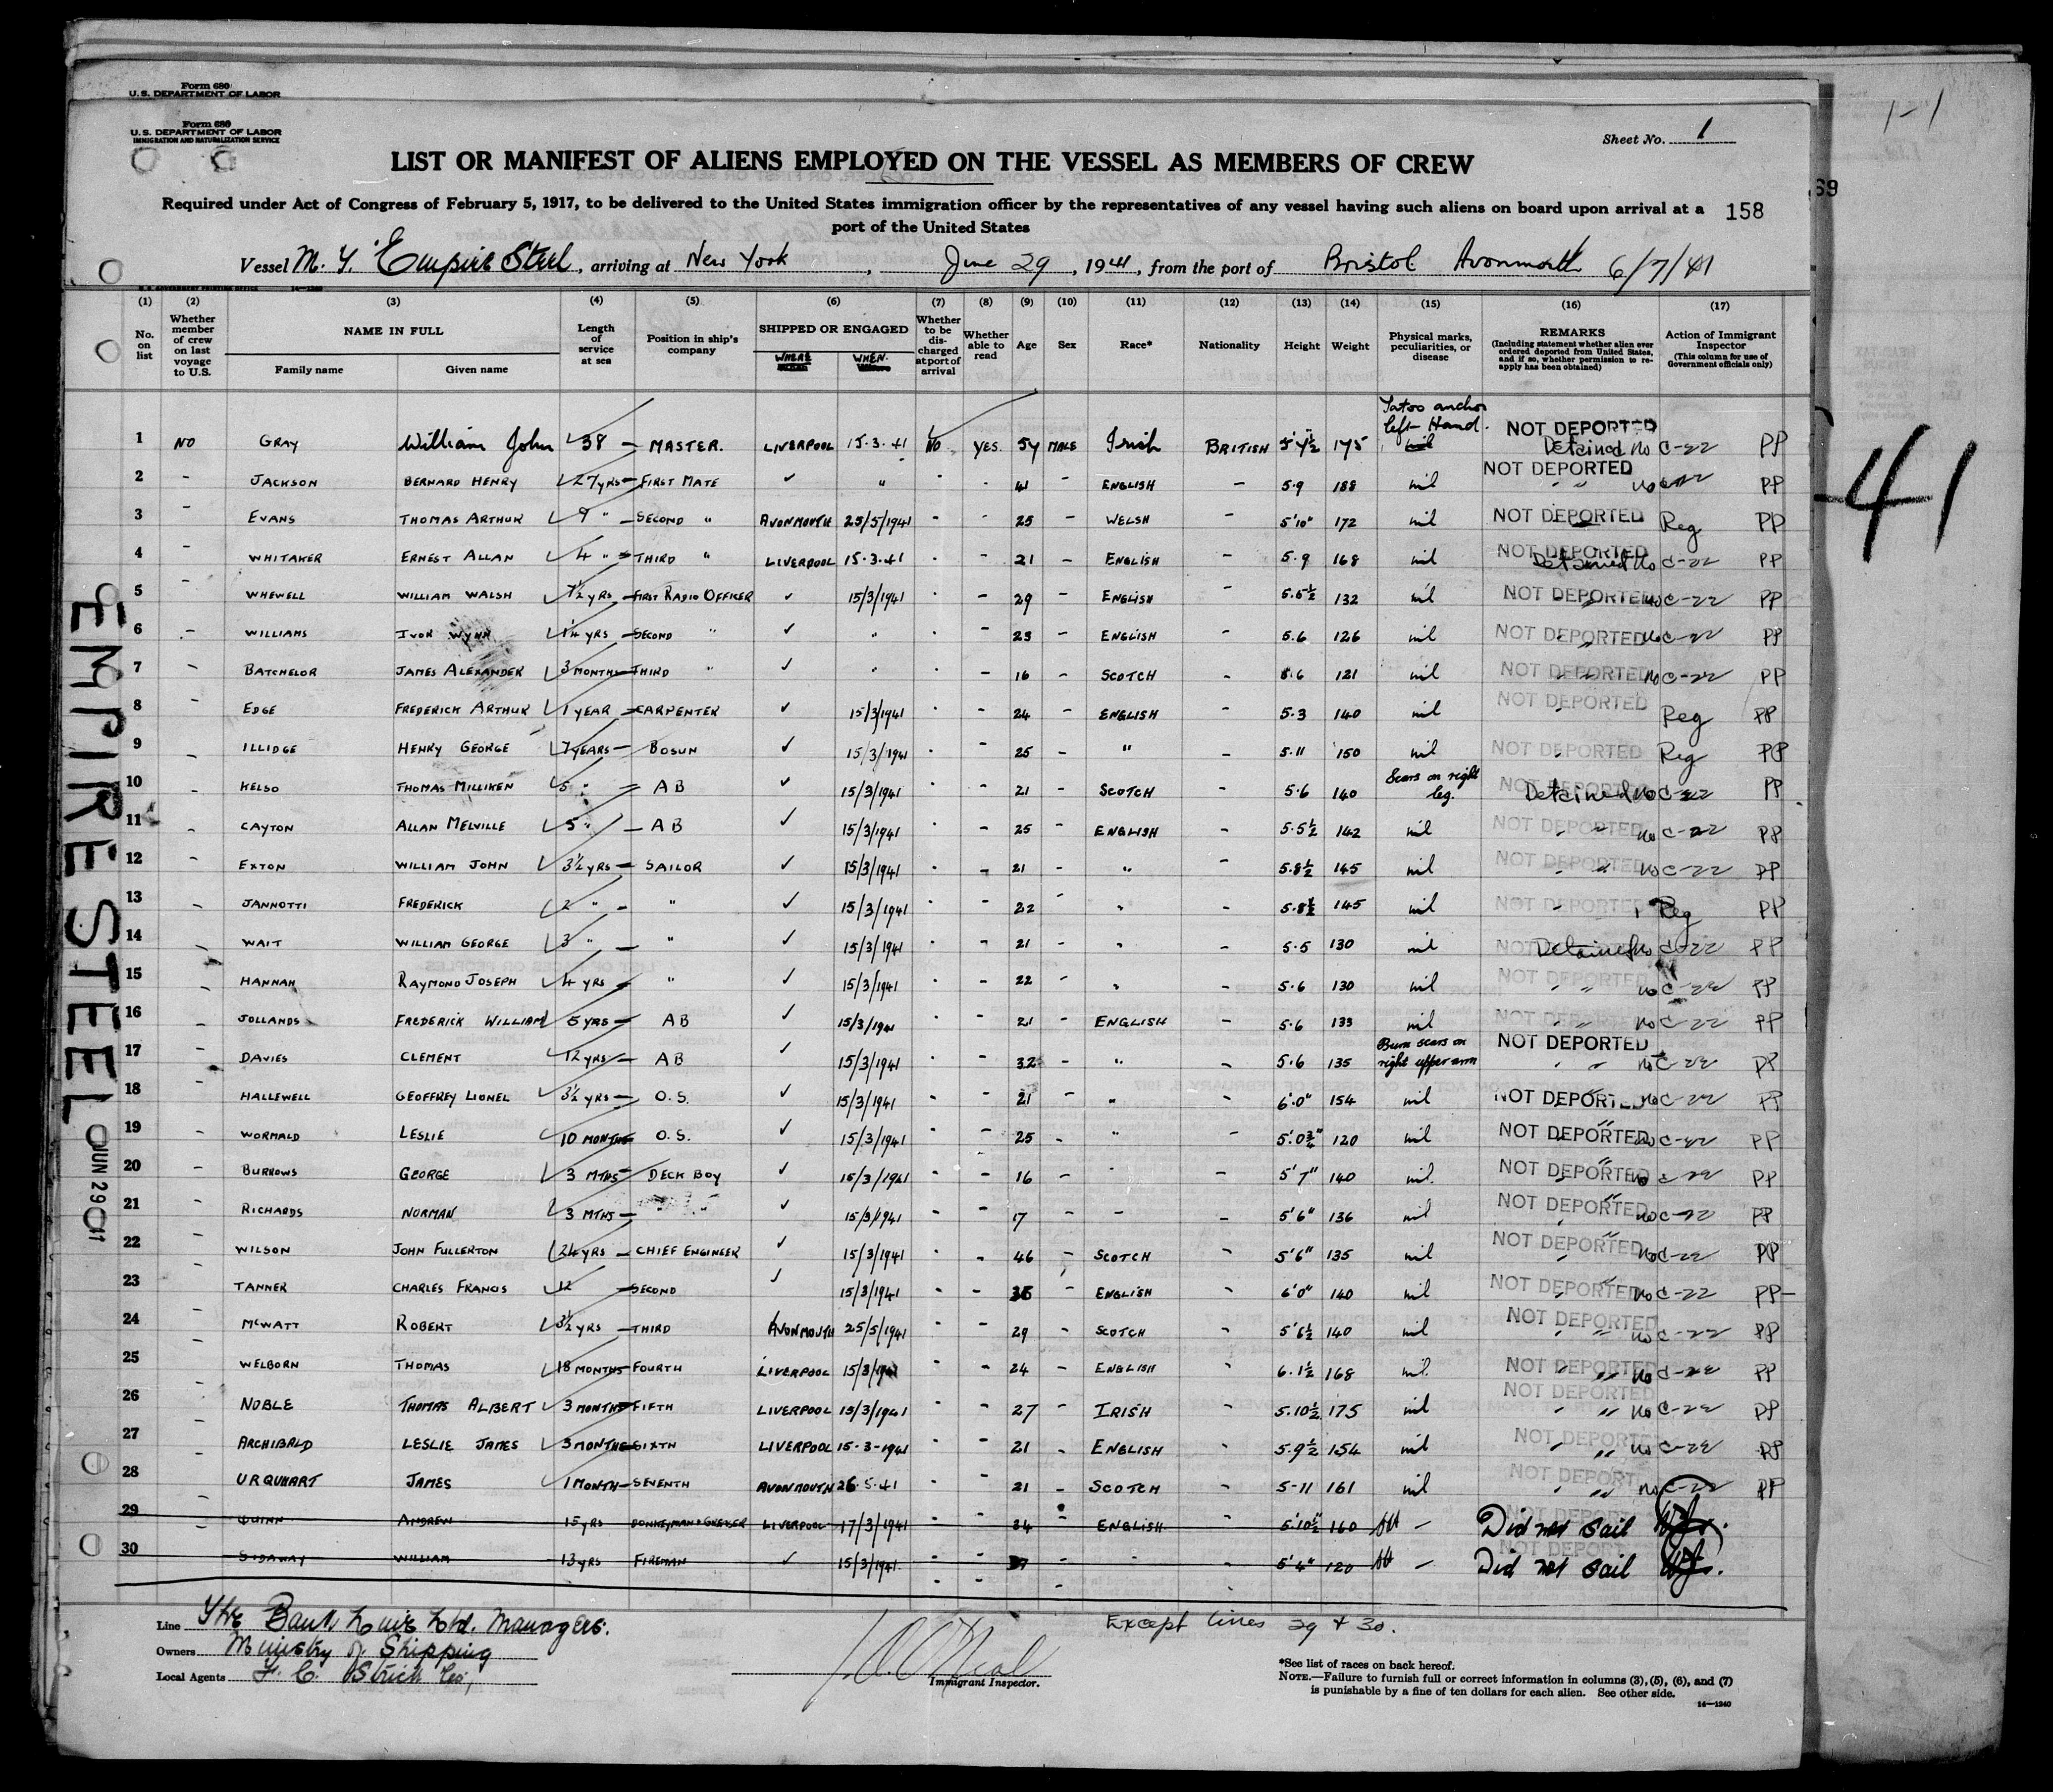 Form 680
U.S. DEPARTMENT OF LABOR
Form 680
U.S. DEPARTMENT OF LABOR
IMMIGRATION AND NATURALIZATION SERVICE
Sheet No. 1
1-1
LIST OR MANIFEST OF ALIENS EMPLOYED ON THE VESSEL AS MEMBERS OF CREW
Required under Act of Congress of February 5, 1917, to be delivered to the United States immigration officer by the representatives of any vessel having such aliens on board upon arrival at a
port of the United States
158
69
Vessel Empire Steel, arriving at New York, June 29, 1941, from the port of Bristol Avonmouth 6/7/41
(1) (2) (3) (4) (5) (6) (7) (8) (9) (10) (11) (12) (13) (14) (15) (16) (17)
No. on list
Whether member of crew on last voyage to U.S.
NAME IN FULL
Family name
Given name
Length of service at sea
Position in ship's company
SHIPPED OR ENGAGED
WHERE
WHEN
Whether to be discharged at port of arrival
Whether able to read
Age
Sex
Race*
Nationality
Height
Weight
Physical marks, peculiarities, or disease
REMARKS
(Including statement whether alien ever ordered deported from United States, and if so, whether permission to re-apply has been obtained)
Action of Immigrant Inspector
(This column for use of Government officials only)
1 NO GRAY William John 38 - MASTER. LIVERPOOL 15.3.41 NO YES. 54 MALE Irish BRITISH 5'4½ 175 Tatoo anchor left Hand. NOT DEPORTED Detained No C-22 PP
2 - JACKSON BERNARD HENRY 27 YRS - FIRST MATE ✓ " - - 41 - ENGLISH - 5.9 188 nil NOT DEPORTED " " No C-22 PP
3 - EVANS THOMAS ARTHUR 9 " - SECOND " AVONMOUTH 25/5/1941 - - 25 - WELSH - 5'10" 172 nil NOT DEPORTED Reg PP
4 - WHITAKER ERNEST ALLAN 4 " - THIRD " LIVERPOOL 15.3.41 - - 21 - ENGLISH - 5.9 168 nil NOT DEPORTED Detained No C-22 PP
5 - WHEWELL WILLIAM WALSH 7½ YRS - FIRST RADIO OFFICER ✓ 15/3/1941 - - 29 - ENGLISH - 5.5½ 132 nil NOT DEPORTED No C-22 PP
6 - WILLIAMS IVOR WYNN 1¼ YRS - SECOND " ✓ " - - 23 - ENGLISH - 5.6 126 nil NOT DEPORTED No C-22 PP
7 - BATCHELOR JAMES ALEXANDER 3 MONTHS - THIRD " ✓ " - - 16 - SCOTCH - 5.6 121 nil NOT DEPORTED No C-22 PP
8 - EDGE FREDERICK ARTHUR 1 YEAR - CARPENTER ✓ 15/3/1941 - - 24 - ENGLISH - 5.3 140 nil NOT DEPORTED Reg PP
9 - ILLIDGE HENRY GEORGE 7 YEARS - BOSUN ✓ 15/3/1941 - - 25 - " - 5.11 150 nil NOT DEPORTED Reg PP
10 - KELSO THOMAS MILLIKEN 5 " - AB ✓ 15/3/1941 - - 21 - SCOTCH - 5.6 140 Scars on right leg. NOT DEPORTED Detained No C-22 PP
11 - CAYTON ALLAN MELVILLE 5 " - AB ✓ 15/3/1941 - - 25 - ENGLISH - 5.5½ 142 nil NOT DEPORTED " No C-22 PP
12 - EXTON WILLIAM JOHN 3½ YRS - SAILOR ✓ 15/3/1941 - - 21 - " - 5.8½ 145 nil NOT DEPORTED " No C-22 PP
13 - JANNOTTI FREDERICK 2 " - " ✓ 15/3/1941 - - 22 - " - 5.8½ 145 nil NOT DEPORTED Reg PP
14 - WAIT WILLIAM GEORGE 3 " - " ✓ 15/3/1941 - - 21 - " - 5.5 130 nil NOT DEPORTED Detained No C-22 PP
15 - HANNAH RAYMOND JOSEPH 4 YRS - " ✓ 15/3/1941 - - 22 - " - 5.6 130 nil NOT DEPORTED " No C-22 PP
16 - JOLLANDS FREDERICK WILLIAM 5 YRS - AB ✓ 15/3/1941 - - 21 - ENGLISH - 5.6 133 nil NOT DEPORTED " No C-22 PP
17 - DAVIES CLEMENT 12 YRS - AB ✓ 15/3/1941 - - 32 - " - 5.6 135 Burn scars on right upper arm NOT DEPORTED " No C-22 PP
18 - HALLEWELL GEOFFREY LIONEL 3½ YRS - O.S. ✓ 15/3/1941 - - 21 - " - 6'.0" 154 nil NOT DEPORTED No C-22 PP
19 - WORMALD LESLIE 10 MONTHS O.S. ✓ 15/3/1941 - - 25 - " - 5'.0¾" 120 nil NOT DEPORTED No C-22 PP
20 - BURROWS GEORGE 3 MTHS - DECK BOY ✓ 15/3/1941 - - 16 - - - 5'7" 140 nil. NOT DEPORTED No C-22 PP
21 - RICHARDS NORMAN 3 MTHS - " " ✓ 15/3/1941 - - 17 - - 5'6" 136 nil NOT DEPORTED No C-22 PP
22 - WILSON JOHN FULLERTON 24 YRS - CHIEF ENGINEER ✓ 15/3/1941 - - 46 - SCOTCH - 5'6" 135 nil NOT DEPORTED No C-22 PP
23 - TANNER CHARLES FRANCIS 12 - SECOND ✓ 15/3/1941 - - - ENGLISH - 6'0" 140 nil NOT DEPORTED No C-22 PP -
24 - McWATT ROBERT 3½ YRS - THIRD AVONMOUTH 25/5/1941 - - 29 - SCOTCH - 5'6½ 140 nil NOT DEPORTED " No C-22 PP
25 - WELBORN THOMAS 18 MONTHS - FOURTH LIVERPOOL 15/3/1941 - - 24 - ENGLISH - 6.1½ 168 nil. NOT DEPORTED " No C-22 PP
26 - NOBLE THOMAS ALBERT 3 MONTHS FIFTH LIVERPOOL 15/3/1941 - - 27 - IRISH 5.10½ 175 nil NOT DEPORTED " No C-22 PP
27 - ARCHIBALD LESLIE JAMES 3 MONTHS SIXTH LIVERPOOL 15-3-1941 - - 21 - ENGLISH - 5.9½ 154 nil NOT DEPORTED " No C-22 PP
28 - URQUHART JAMES 1 MONTH - SEVENTH AVONMOUTH 26.5.41 - - 21 - SCOTCH - 5-11 161 nil NOT DEPORTED " No C-22 PP
29 - QUINN ANDREW 15 YRS DONKEYMAN & GREASER LIVERPOOL 17/3/1941 - - 34 - ENGLISH 5'10½" 160 - Did not sail
30 - SIDAWAY WILLIAM 13 YRS FIREMAN ✓ 15/3/1941 - - 37 - - - 5'4" 120 - Did not sail
EMPIRE STEEL
JUN 29
41
Line The Bank Line Ltd. Managers.
Owners Ministry of Shipping
Local Agents F. C. Strick Co,
Immigrant Inspector.
Except lines 29 + 30.
*See list of races on back hereof.
NOTE.—Failure to furnish full or correct information in columns (3), (5), (6), and (7)
is punishable by a fine of ten dollars for each alien. See other side.
14—1240